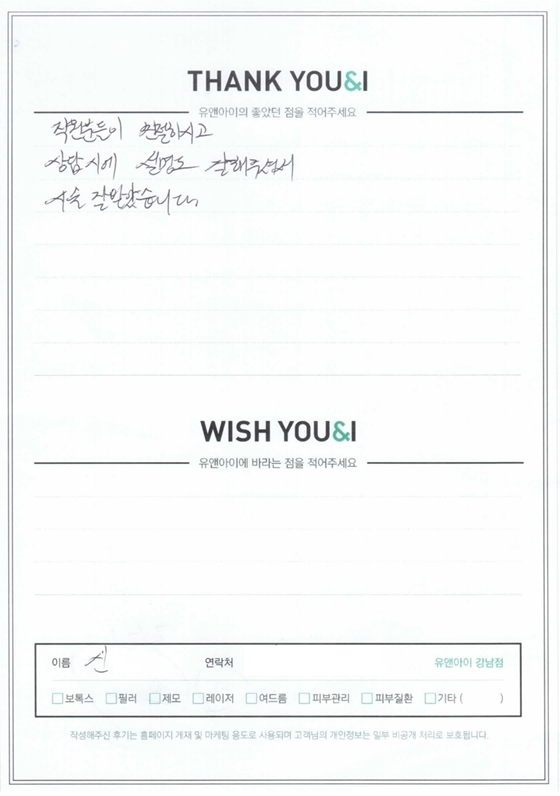 THANK YOU&I
유앤아이의 좋았던 점을 적어주세요
직원분들이 친절하시고
상담시에 설명도 잘해주셔서
시술 잘받았습니다.
WISH YOU&I
유앤아이에 바라는 점을 적어주세요
이름 신 연락처 유앤아이 강남점
보톡스 필러 제모 레이저 여드름 피부관리 피부질환 기타 ( )
작성해주신 후기는 홈페이지 게재 및 마케팅 용도로 사용되며 고객님의 개인정보는 일부 비공개 처리로 보호됩니다.